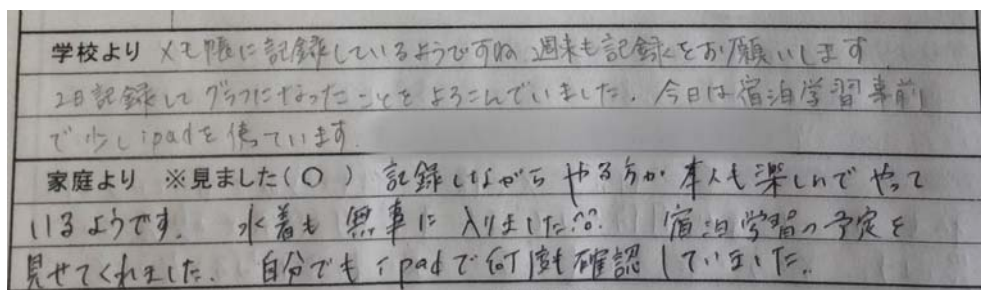 学校より メモ帳に記録しているようですね 週末も記録をお願いします
2日記録して グラフになったことを よろこんでいました. 今日は宿泊学習事前
で少しipadを使っています
家庭より ※見ました(〇) 記録しながら やる方が 本人も楽しんで やって
いるようです. 水着も 無事に 入りました^^ 宿泊学習の予定を
見せてくれました. 自分でも ipadで何度も確認していました.